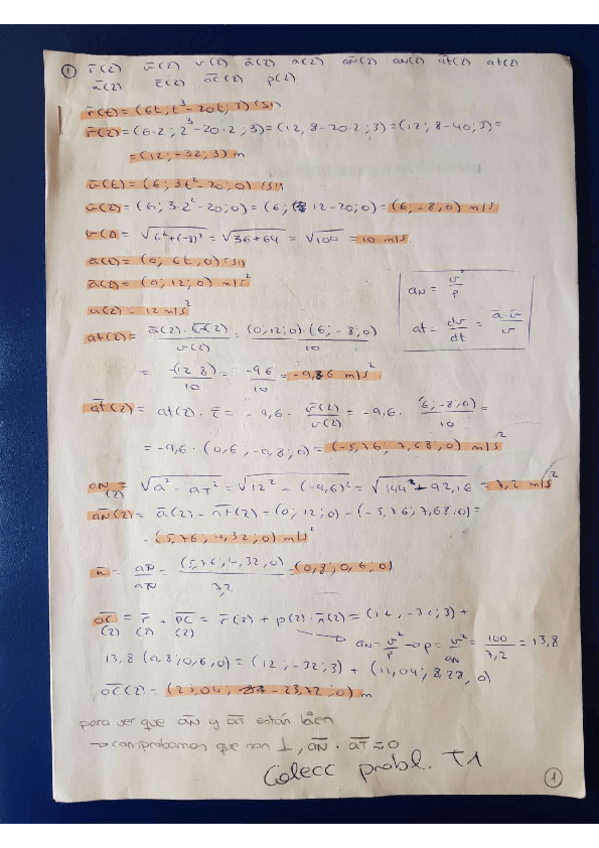 ① r̄(2) v̄(2) v(2) ā(2) a(2) āN(2) aN(2) āt(2) at(2)
n̄(2) τ̄(2) OC̄(2) ρ(2)
r̄(t) = (6t, t³ - 20t, 3) (SI)
r̄(2) = (6·2; 2³ - 20·2; 3) = (12, 8-20·2; 3) = (12; 8-40; 3) =
= (12; -32; 3) m
v̄(t) = (6; 3t² - 20; 0) (SI)
v̄(2) = (6; 3·2² - 20; 0) = (6; 12-20; 0) = (6; -8; 0) m/s
v(2) = √6² + (-8)² = √36+64 = √100 = 10 m/s
ā(t) = (0; 6t, 0) (SI)
ā(2) = (0; 12; 0) m/s²
a(2) = 12 m/s²
aN = v²/ρ
at = dv/dt = ā·v̄/v
at(2) = ā(2)·v̄(2)/v(2) = (0; 12; 0)·(6; -8; 0)/10
= -(12·8)/10 = -96/10 = -9,6 m/s²
āt(2) = at(2)·τ̄ = -9,6 · v̄(2)/v(2) = -9,6 · (6; -8; 0)/10 =
= -9,6 · (0,6; -0,8; 0) = (-5,76; 7,68; 0) m/s²
aN(2) = √a² - aT² = √12² - (-9,6)² = √144 - 92,16 = 7,2 m/s²
āN(2) = ā(2) - āt(2) = (0; 12; 0) - (-5,76; 7,68; 0) =
= (5,76; 4,32; 0) m/s²
n̄ = āN/aN = (5,76; 4,32; 0)/7,2 = (0,8; 0,6; 0)
OC̄(2) = r̄(2) + PC̄(2) = r̄(2) + ρ(2)·n̄(2) = (12, -32; 3) +
aN = v²/ρ → ρ = v²/aN = 100/7,2 = 13,8
13,8 (0,8; 0,6; 0) = (12; -32; 3) + (11,04; 8,28, 0)
OC̄(2) = (23,04; -23,72; 0) m
para ver que āN y āT están bien
→ comprobamos que son ⊥, āN · āT = 0
Colecc probl. T1
①